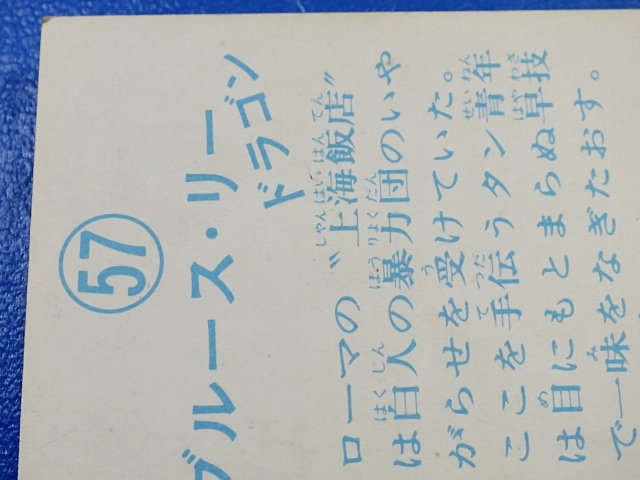 57
ブルース・リー
ドラゴン
ローマの〝上海飯店〟
は白人の暴力団のいや
がらせを受けていた。
ここを手伝うタン青年
は目にもとまらぬ早技
で一味をなぎたおす。